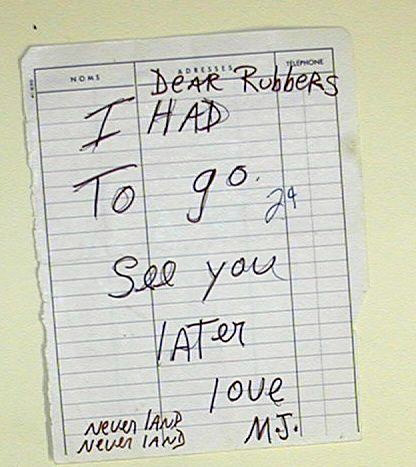 NOMS ADRESSES TELEPHONE
DEAR RubbeRS
I HAD
To go.
See you
lATer
love
M.J.
Never lAND
Never lAND